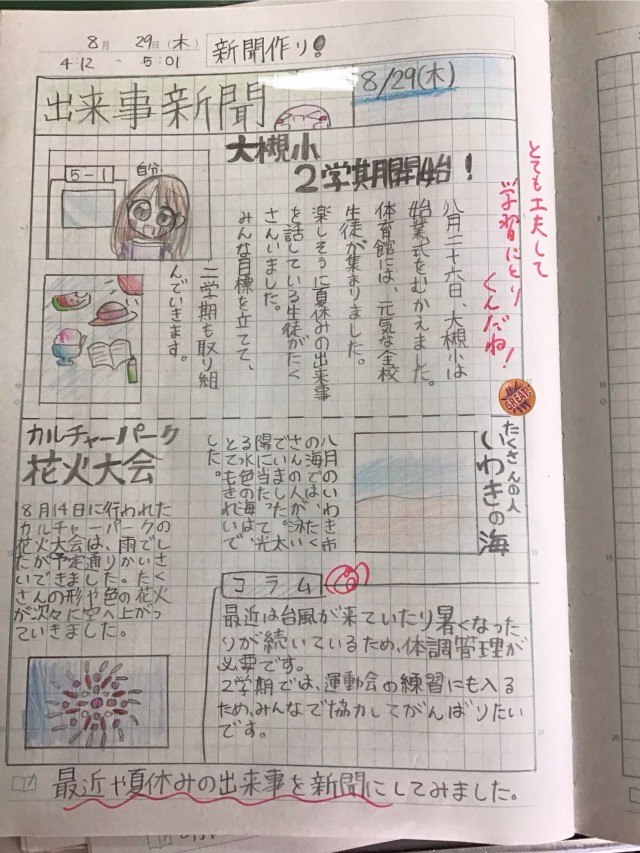 8月 29日(木)
4:12 - 5:01
新聞作り!
出来事新聞
8/29(木)
大槻小
2学期開始!
5-1
自分
八月二十六日、大槻小は
始業式をむかえました。
体育館には、元気な全校
生徒が集まりました。
楽しそうに夏休みの出来事
を話している生徒がたく
さんいました。
みんな目標を立てて、
二学期も取り組
んでいきます。
とても工夫して
学習にとり
くんだね!
GREAT!
たくさんの人
いわきの海
八月のいわき市
の海では、たく
さんの人が泳い
でいました。太
陽に当たって光
る水色の海は、
とてもきれいで
した。
カルチャーパーク
花火大会
8月14日に行われた
カルチャーパークの
花火大会は、雨でし
たが予定通りかいさ
いできました。たく
さんの形や色の花火
が次々に空へ上がっ
ていきました。
コラム
最近は台風が来ていたり暑くなった
りが続いているため、体調管理が
必要です。
2学期では、運動会の練習にも入る
ため、みんなで協力してがんばりたい
です。
最近や夏休みの出来事を新聞にしてみました。